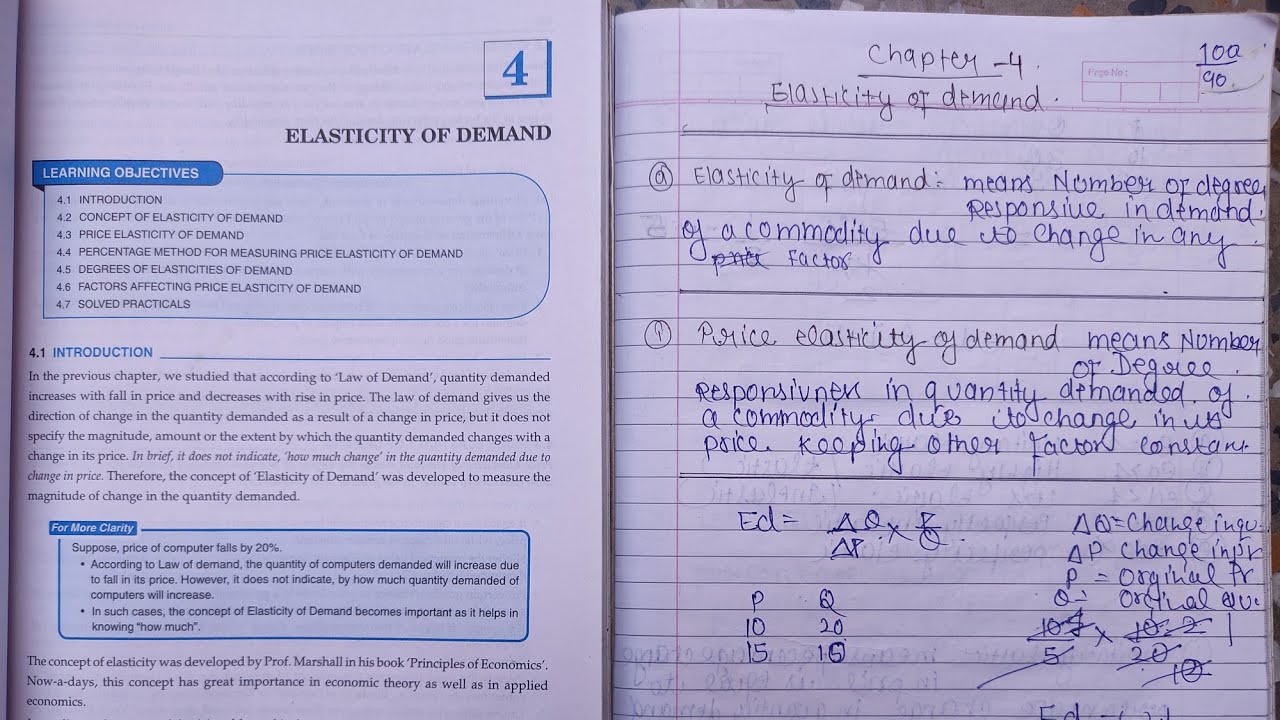 4
ELASTICITY OF DEMAND
LEARNING OBJECTIVES
4.1 INTRODUCTION
4.2 CONCEPT OF ELASTICITY OF DEMAND
4.3 PRICE ELASTICITY OF DEMAND
4.4 PERCENTAGE METHOD FOR MEASURING PRICE ELASTICITY OF DEMAND
4.5 DEGREES OF ELASTICITIES OF DEMAND
4.6 FACTORS AFFECTING PRICE ELASTICITY OF DEMAND
4.7 SOLVED PRACTICALS
4.1 INTRODUCTION
In the previous chapter, we studied that according to 'Law of Demand', quantity demanded
increases with fall in price and decreases with rise in price. The law of demand gives us the
direction of change in the quantity demanded as a result of a change in price, but it does not
specify the magnitude, amount or the extent by which the quantity demanded changes with a
change in its price. In brief, it does not indicate, 'how much change' in the quantity demanded due to
change in price. Therefore, the concept of 'Elasticity of Demand' was developed to measure the
magnitude of change in the quantity demanded.
For More Clarity
Suppose, price of computer falls by 20%.
• According to Law of demand, the quantity of computers demanded will increase due
to fall in its price. However, it does not indicate, by how much quantity demanded of
computers will increase.
• In such cases, the concept of Elasticity of Demand becomes important as it helps in
knowing "how much".
The concept of elasticity was developed by Prof. Marshall in his book 'Principles of Economics'.
Now-a-days, this concept has great importance in economic theory as well as in applied
economics.
Chapter -4.
Elasticity of demand.
Page No:
90
@ Elasticity of demand:- means Number of degree
Responsive in demand.
of a commodity due to change in any.
Factor
① Price elasticity of demand means Number
of Degree.
Responsivness in quantity demanded of.
a commodity due to change in its
price keeping other factor constant
Ed = ΔQ/ΔP × P/Q
ΔQ = Change in qu.
ΔP Change in pr
P = Orginal Pr
Q = Orginal Qu.
P Q
10 20
15 10
5 20
10